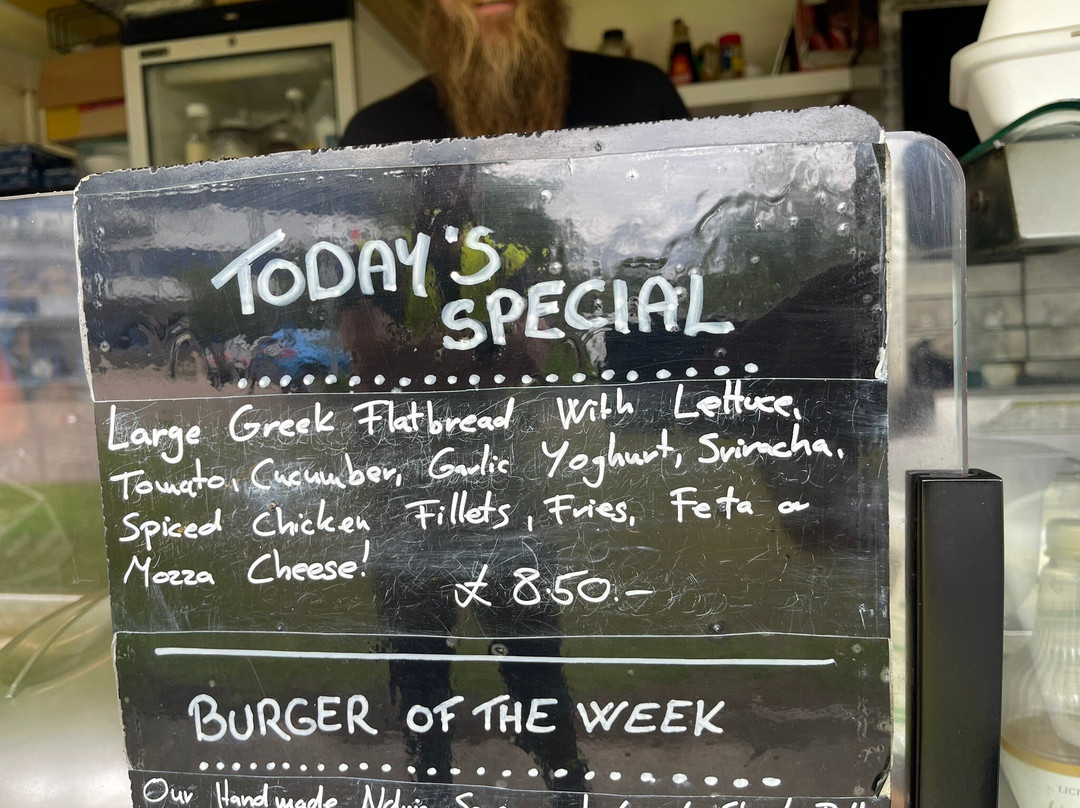 TODAY'S
SPECIAL
Large Greek Flatbread With Lettuce,
Tomato, Cucumber, Garlic Yoghurt, Sriracha,
Spiced Chicken Fillets, Fries, Feta or
Mozza Cheese!
£ 8.50.-
BURGER OF THE WEEK
Our Handmade